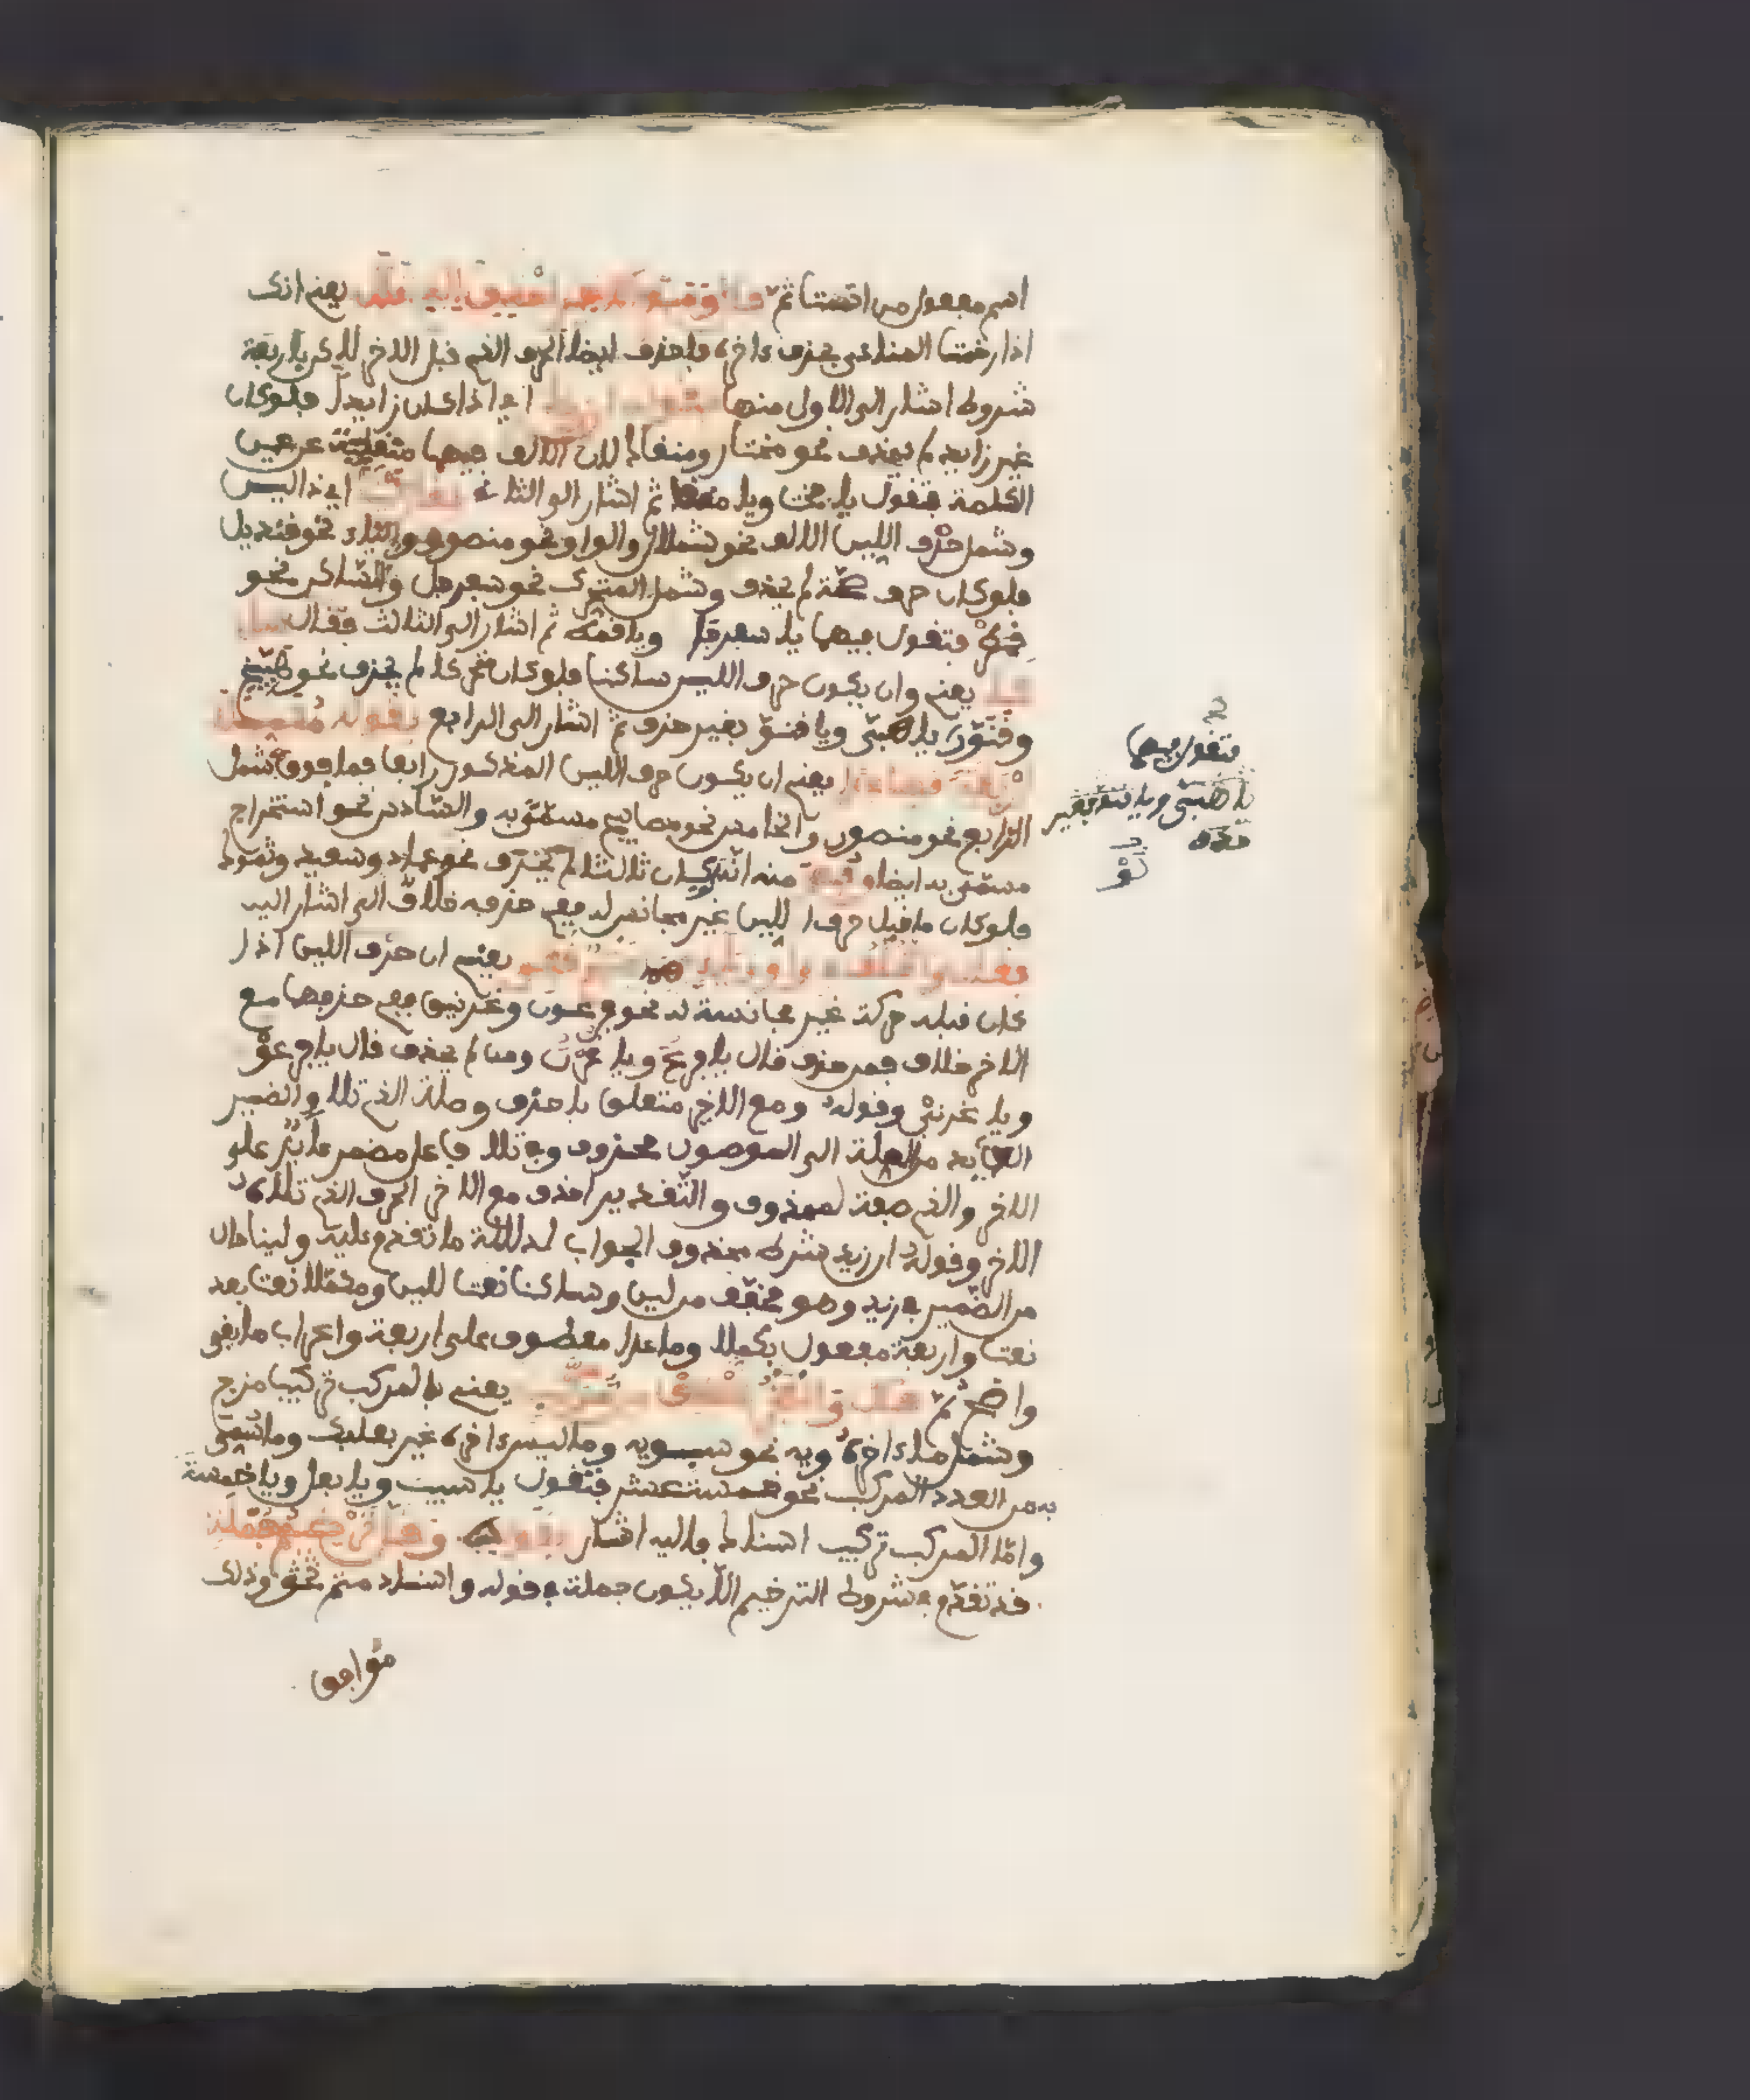 اسم مفعول من اتممت ثم قال ومع الاخر احذف الذي تلا يعني انك
اذا رخمت المنادى بحذف ءاخره فاحذف ايضا الحرف الذي قبل الاخر لاكن باربعة
شروط اشار الى الاول منها بقوله ان زيد اي اذا كان زايدا فلو كان
غير زايد لم يحذف نحو مختار ومنقاد لان الالف فيهما منقلبة عن عين
الكلمة فتقول يا مختا ويا منقا ثم اشار الى الثاني اي ذا لين
وشمل حرف اللين الالف نحو شملال والواو نحو منصور والياء نحو قنديل
فلو كان حرف صحة لم يحذف وشمل المتحرك نحو سفرجل والساكن نحو
قمطر فتقول فيهما يا سفرج ويا قمط ثم اشار الى الثالث فقال ساكنا
يعني وان يكون حرف اللين ساكنا فلو كان متحركا لم يحذف نحو هبيخ
وقنور يا هبي ويا قنو بغير حذف ثم اشار الى الرابع بقوله مكملا
اربعة فصاعدا يعني ان يكون حرف اللين المذكور رابعا فما فوق شمل
الرابع نحو منصور والخامس نحو مصابيح مسمى به والسادس نحو استخراج
مسمى به ايضا وفهم منه انه ان كان ثالثا لم يحذف نحو عماد وسعيد وثمود
فلو كان ما قبل حرف اللين غير مجانس له ففي حذفه خلاف الى اشار اليه
فقال والخلف في واو وياء بهما فتح قفي يعني ان حرف اللين اذا
كان قبله حركة غير مجانسة له نحو فرعون وغرنيق ففي حذفهما مع
الاخر خلاف فمن حذف قال يا فرع ويا غرن ومن لم يحذف قال يا فرعو
ويا غرني وقوله ومع الاخر متعلق باحذف وصلة الذي تلا والضمير
العايد من الصلة الى الموصول محذوف وفي تلا فاعل مضمر عايد على
الاخر والذي صفة لمحذوف والتقدير احذف مع الاخر الحرف الذي تلاه
الاخر وقوله ان زيد شرط محذوف الجواب لدلالة ما تقدم عليه ولينا حال
من الضمير في زيد وهو مخفف من لين وساكنا نعت للين ومكملا نعت بعد
نعت واربعة مفعول بمكملا وما عدا معطوف على اربعة واعراب ما بقي
واضح ثم قال والعجز احذف من مركب يعني بالمركب تركيب مزج
وشمل ما ءاخره ويه نحو سيبويه وما ليس ءاخره غير بعلبك وما سمي
به من العدد المركب نحو خمسة عشر فتقول يا سيب ويا بعل ويا خمسة
واما المركب تركيب اسناد فاليه اشار بقوله وقل ترخيم جملة
قد تقدم في شروط الترخيم الا يكون جملة في قوله واسناد متم نحو وذلك
موافق
فتقول فيهما
يا هبي ويا قنو بغير
حذف